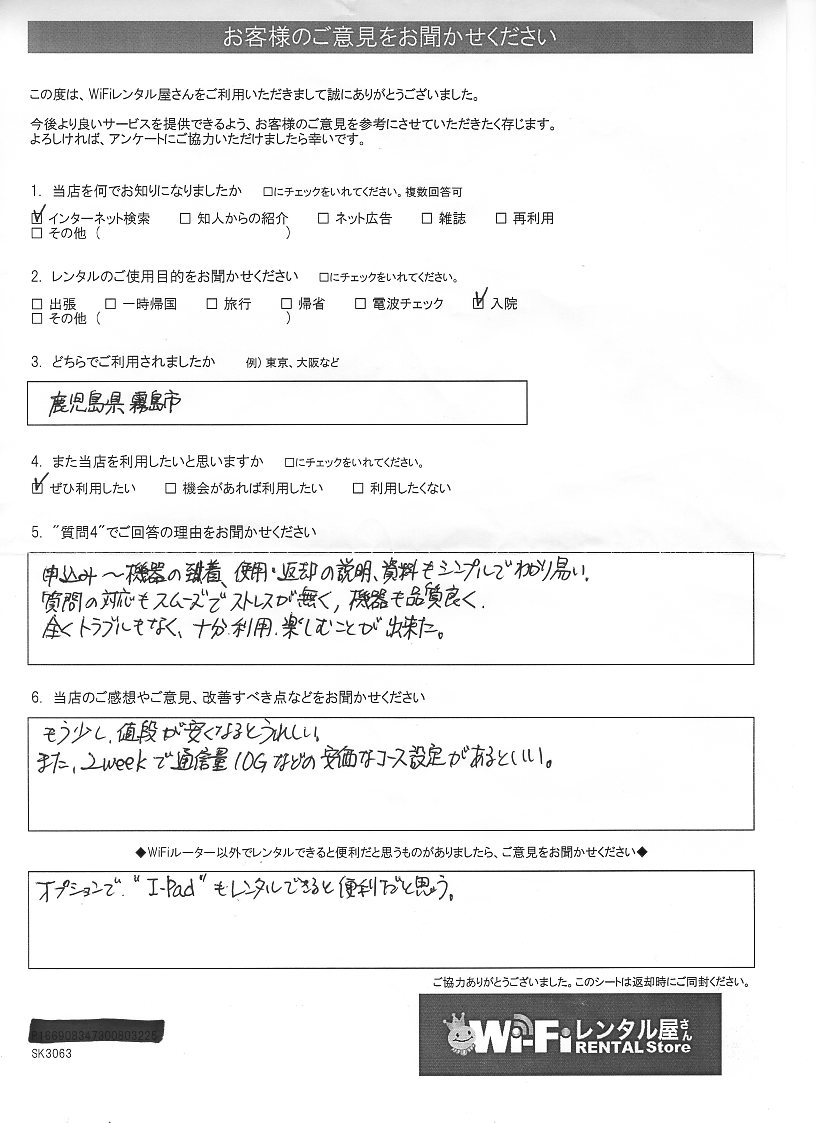 お客様のご意見をお聞かせください
この度は、WiFiレンタル屋さんをご利用いただきまして誠にありがとうございました。
今後より良いサービスを提供できるよう、お客様のご意見を参考にさせていただきたく存じます。
よろしければ、アンケートにご協力いただけましたら幸いです。
1. 当店を何でお知りになりましたか □にチェックをいれてください。複数回答可
☑ インターネット検索 □ 知人からの紹介 □ ネット広告 □ 雑誌 □ 再利用
□ その他 ( )
2. レンタルのご使用目的をお聞かせください □にチェックをいれてください。
□ 出張 □ 一時帰国 □ 旅行 □ 帰省 □ 電波チェック ☑ 入院
□ その他 ( )
3. どちらでご利用されましたか 例) 東京、大阪など
鹿児島県霧島市
4. また当店を利用したいと思いますか □にチェックをいれてください。
☑ ぜひ利用したい □ 機会があれば利用したい □ 利用したくない
5. "質問4"でご回答の理由をお聞かせください
申込み～機器の到着、使用・返却の説明、資料もシンプルでわかり易い。
質問の対応もスムーズでストレスが無く、機器も品質良く、
全くトラブルもなく、十分利用、楽しむことが出来た。
6. 当店のご感想やご意見、改善すべき点などをお聞かせください
もう少し、値段が安くなるとうれしい。
また、2weekで通信量10Gなどの安価なコース設定があるといい。
◆WiFiルーター以外でレンタルできると便利だと思うものがありましたら、ご意見をお聞かせください◆
オプションで、"I-Pad"もレンタルできると便利だと思う。
ご協力ありがとうございました。このシートは返却時にご同封ください。
SK3063
Wi-Fiレンタル屋さん
RENTAL Store